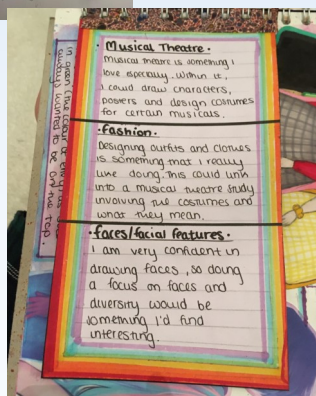 • Musical Theatre •
Musical theatre is something I
love especially. Within it,
I could draw characters,
posters and design costumes
for certain musicals.
• Fashion •
Designing outfits and clothes
is something that I really
like doing. This could link
into a musical theatre study
involving the costumes and
what they mean.
• faces/facial features •
I am very confident in
drawing faces, so doing
a focus on faces and
diversity would be
something I'd find
interesting.
in green (the colour of envy) as
always wanted to be on the top.